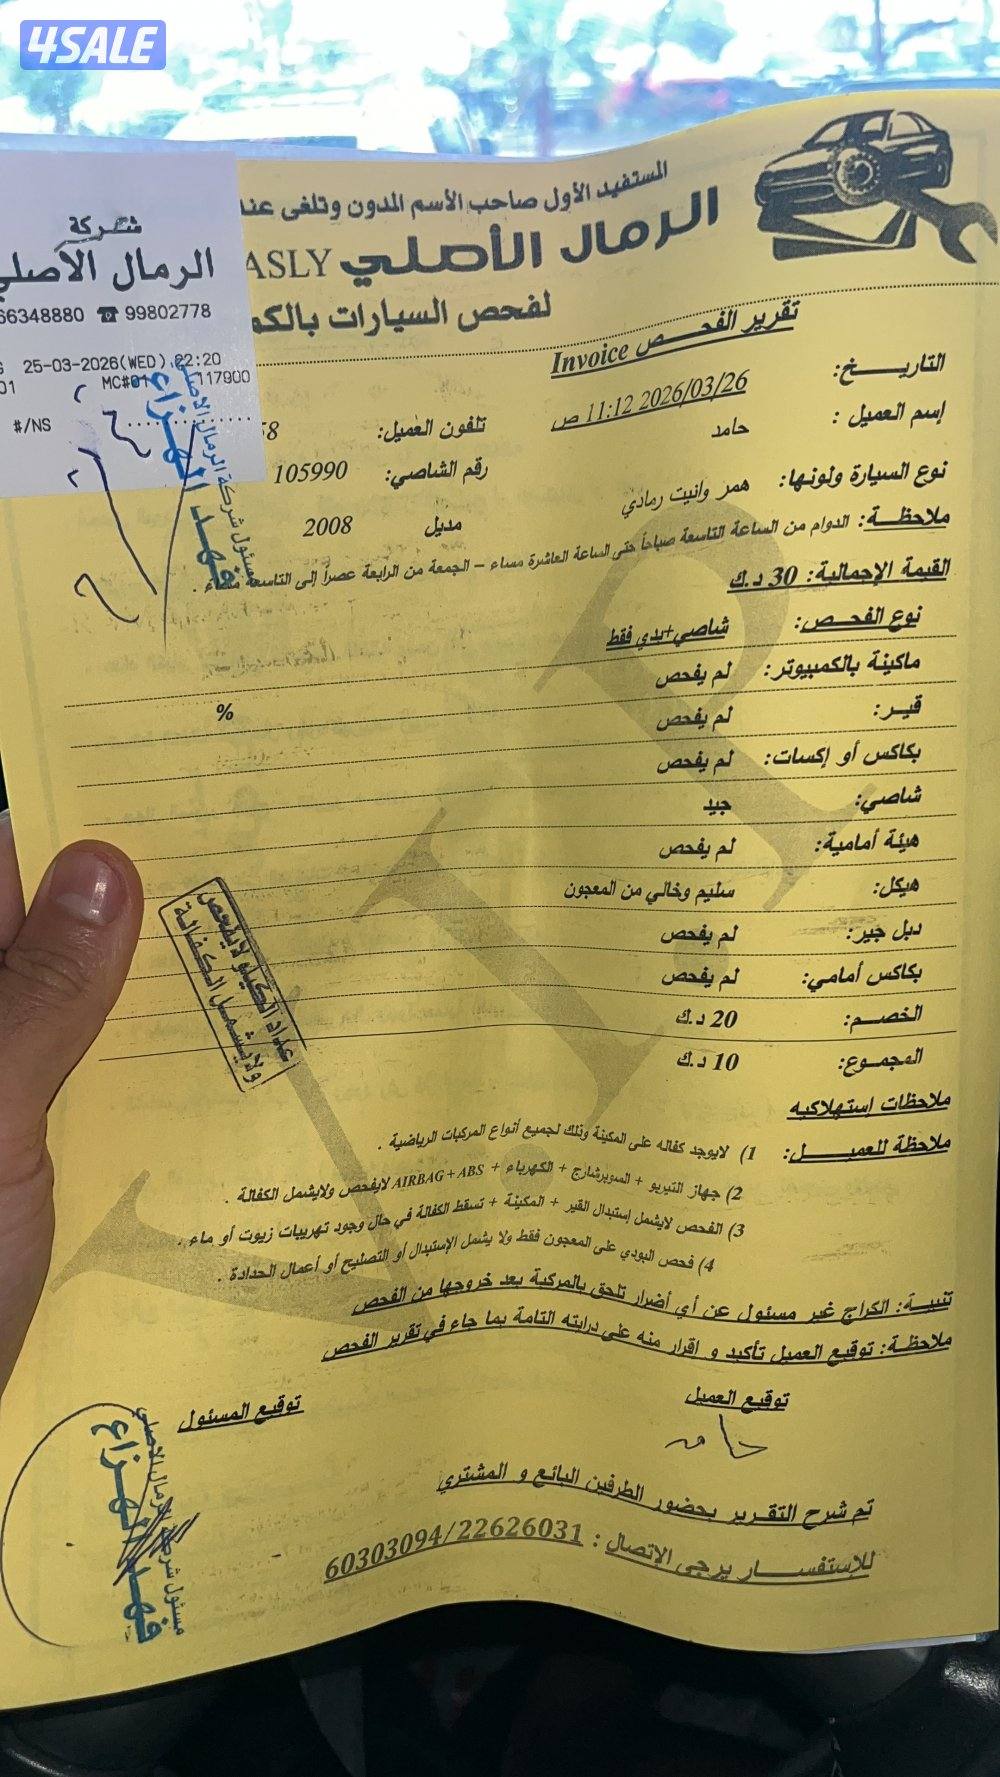 4SALE
المستفيد الأول صاحب الأسم المدون وتلغى عند
الرمال الأصلي ASLY
لفحص السيارات بالكم
شركة
الرمال الأصلي
66348880 ☎ 99802778
25-03-2026(WED) 22:20
01 MC#01 117900
#/NS
مسئول شركة الرمال الأصلي
فهد الهزاع
تقرير الفحص Invoice
التاريخ: 2026/03/26 11:12 ص
إسم العميل : حامد
تلفون العميل: 58
نوع السيارة ولونها: همر وانيت رمادي
رقم الشاصي: 105990
مديل 2008
ملاحظة: الدوام من الساعة التاسعة صباحاً حتى الساعة العاشرة مساء – الجمعة من الرابعة عصراً إلى التاسعة مساء .
القيمة الإجمالية: 30 د.ك
نوع الفحص: شاصي+بدي فقط
ماكينة بالكمبيوتر: لم يفحص
%
قير: لم يفحص
بكاكس أو إكسات: لم يفحص
شاصي: جيد
هيئة أمامية: لم يفحص
هيكل: سليم وخالي من المعجون
دبل جير: لم يفحص
بكاكس أمامي: لم يفحص
الخصم: 20 د.ك
المجموع: 10 د.ك
عداد الكيلو لايفحص
ولايشمل الكفالة
ملاحظات إستهلاكيه
ملاحظة للعميل: 1) لايوجد كفاله على المكينة وذلك لجميع أنواع المركبات الرياضية .
2) جهاز التيربو + السوبرشارج + الكهرباء + AIRBAG + ABS لايفحص ولايشمل الكفالة .
3) الفحص لايشمل إستبدال القير + المكينة + تسقط الكفالة في حال وجود تهريبات زيوت أو ماء .
4) فحص البودي على المعجون فقط ولا يشمل الإستبدال أو التصليح أو أعمال الحدادة .
تنبية: الكراج غير مسئول عن أي أضرار تلحق بالمركبة بعد خروجها من الفحص
ملاحظة: توقيع العميل تأكيد و اقرار منه على درايته التامة بما جاء في تقرير الفحص
توقيع العميل
توقيع المسئول
حامد
مسئول شركة الرمال الأصلي
فهد الهزاع
تم شرح التقرير بحضور الطرفين البائع و المشتري
للإستفسار يرجى الإتصال : 60303094/22626031
V.I.P